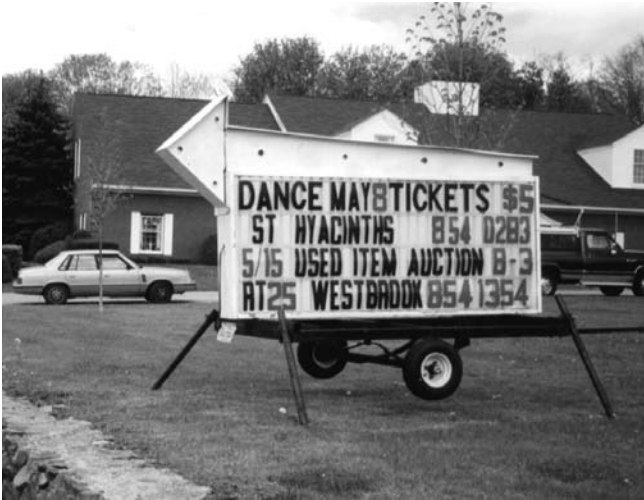 DANCE MAY 8 TICKETS $5
ST HYACINTHS 854 0283
5/15 USED ITEM AUCTION 8-3
AT 25 WESTBROOK 854 1354